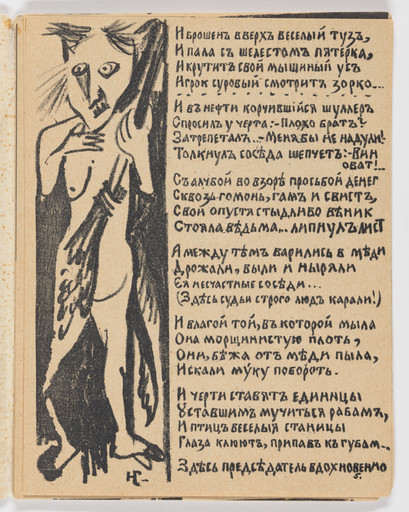 И брошенъ вверхъ веселый тузъ,
И пала съ шелестомъ пятерка,
И крутитъ свой мышиный усъ
Игрок суровый смотритъ зорко...
И въ нефти корчившійся шуллеръ
Спросилъ у черта:-Плохо братъ?
Затрепеталъ...-Меня бы не надули!
Толкнулъ сосѣда шепчетъ:-Вин
оват!...
Съ алчбой во взорѣ просьбой денег
Сквозь гомонь, гамъ и свистъ,
Свой опустя стыдливо вѣник
Стояла вѣдьма... липнулъ лист
А между тѣмъ варились в мѣди
Дрожали, выли и ныряли
Ея несчастные сосѣди...
(Здѣсь судьи строго людъ карали!)
И влагой той, въ которой мыла
Она морщинистую плоть,
Они, бѣжа отъ мѣди пыла,
Искали му́ку побороть.
И черти ставятъ единицы
Уставшимъ мучиться рабамъ,
И птиц веселыя станицы
Глаза клюютъ, припавъ къ губам...
Здѣсь предсѣдатель вдохновенно
НГ
5.